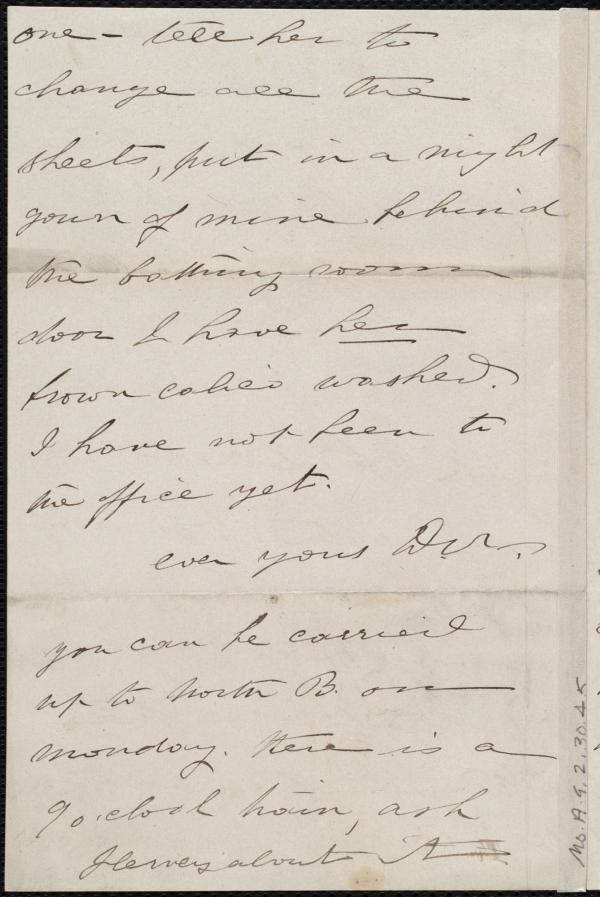 one – tell her to
change all the
sheets, put in a night
gown of mine behind
the bathing room
door & have her
brown calico washed.
I have not been to
the office yet.
ever yours
you can be carried
up to North B. on
monday. there is a
9 o.clock train, ask
Hervey about it
Ms.A.9.2.30.45